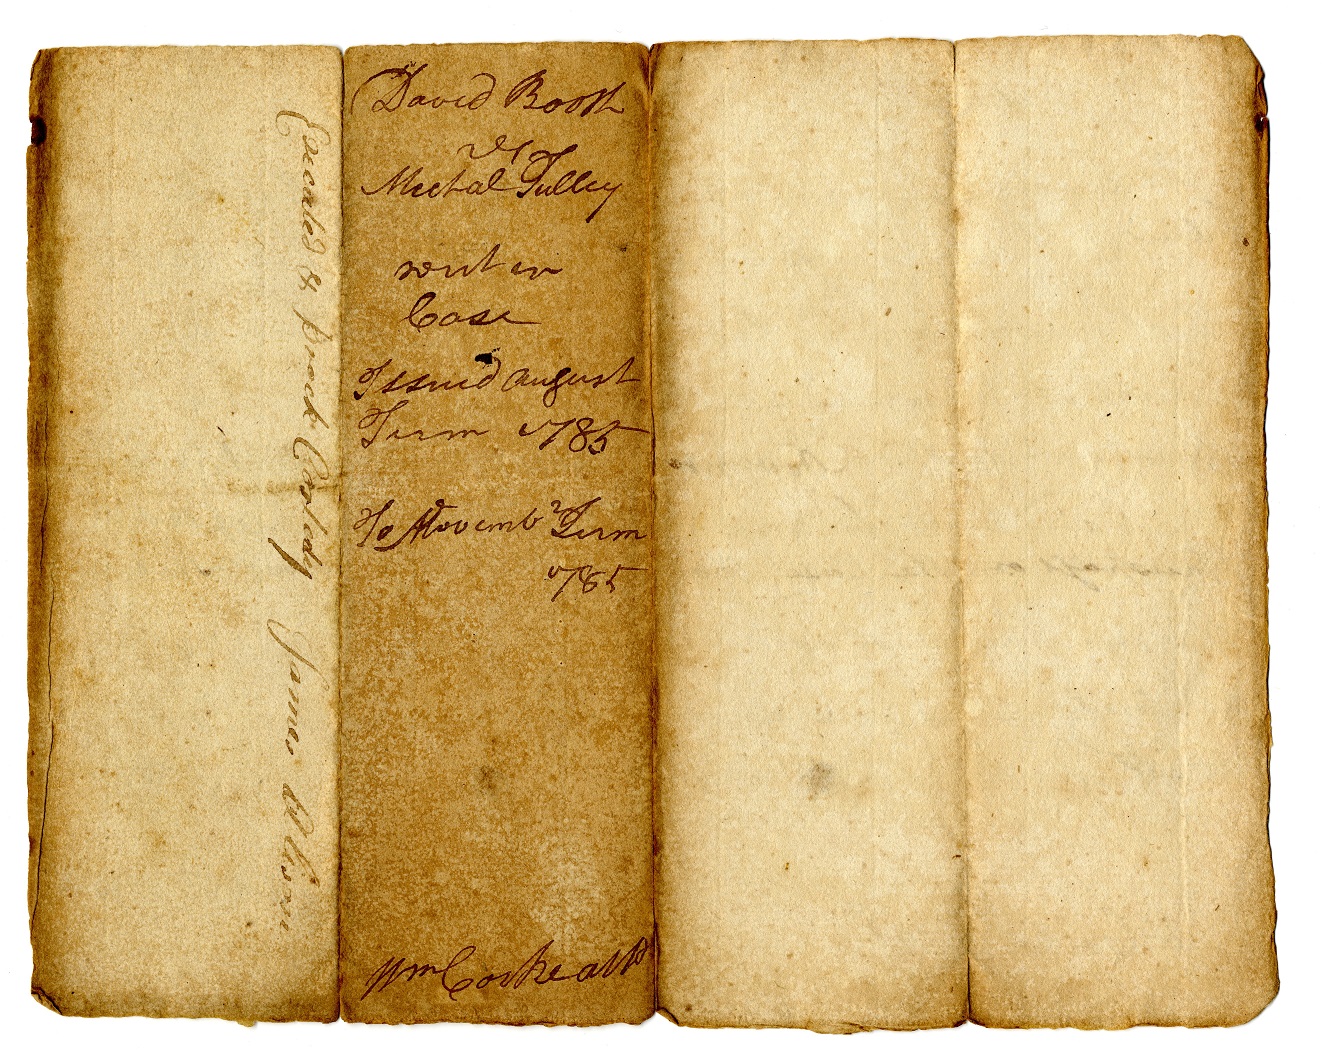 Executed & broat Custody James Wilson
David Booth
vs
Michal Tulley
writ in
Case
Issued August
Term 1785
To Novembr Term
1785
Wm Cocke atto